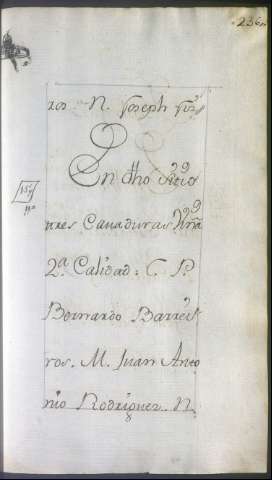 236
ros. N. Joseph
En dho sitio
tres Cavaduras Viña
2ª Calidad: L. P.
Bernardo Barrei
ros. M. Juan Anto
nio Rodriguez. N.